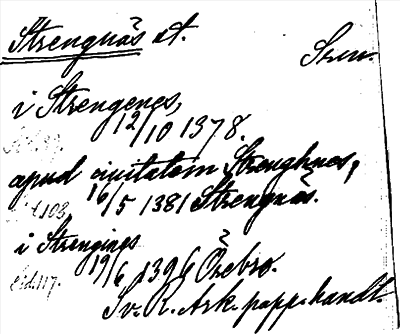 Strengnäs st. Srm.
i Strengenes,
12/10 1378.
apud civitatem Strenghnes,
16/5 1381 Strengnäs.
i Strengings
19/6 1396 Örebro.
Sv. R. Ark. papp. handl.